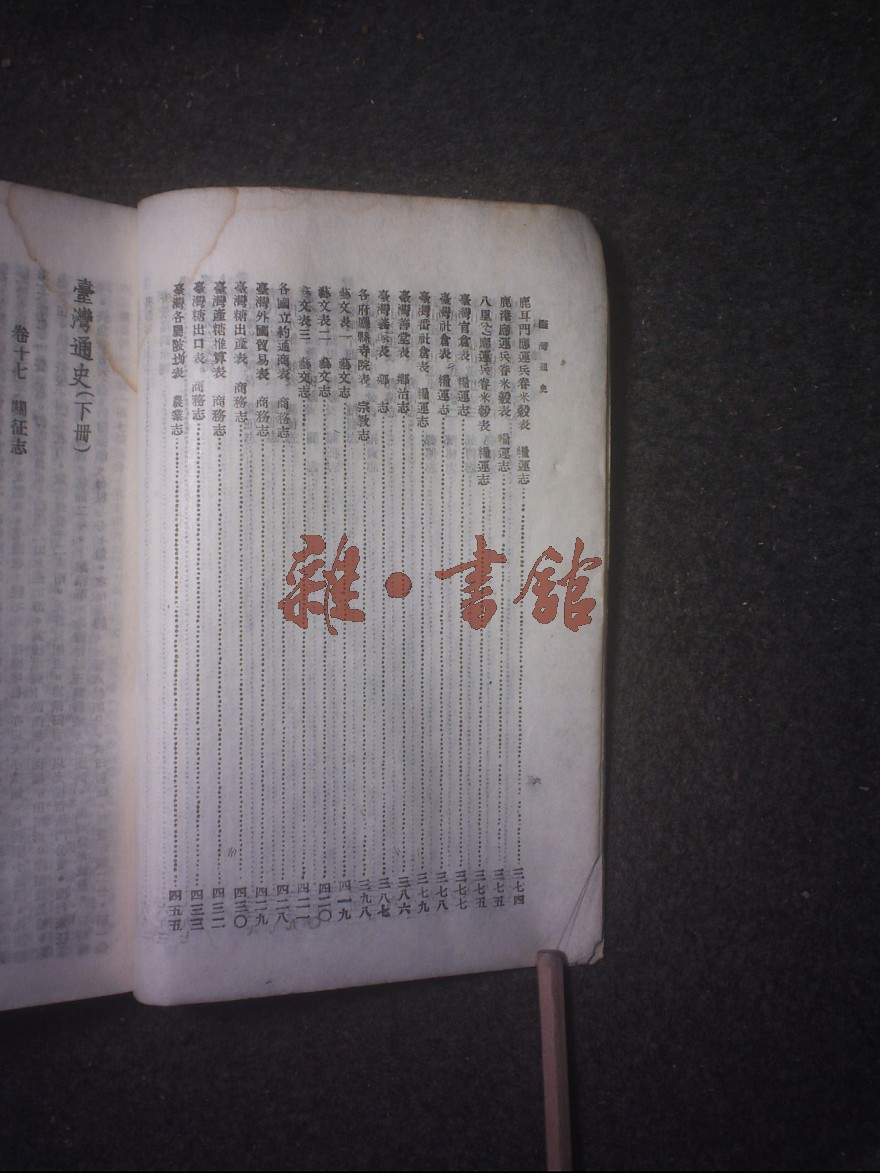 臺灣通史
鹿耳門廳運兵眷米穀表 糧運志 三七四
鹿港廳運兵眷米穀表 糧運志 三七五
八里坌廳運兵眷米穀表 糧運志 三七五
臺灣官倉表 糧運志 三七七
臺灣社倉表 糧運志 三七八
臺灣番社倉表 糧運志 三七九
臺灣善堂表 鄉治志 三八六
臺灣義 表 鄉 志 三八七
各府廳縣寺院表 宗教志 三九八
藝文表一 藝文志 四一九
藝文表二 藝文志 四二〇
藝文表三 藝文志 四二一
各國立約通商表 商務志 四二八
臺灣外國貿易表 商務志 四二九
臺灣糖出產表 商務志 四三〇
臺灣產糖推算表 商務志 四三二
臺灣糖出口表 商務志 四三三
臺灣各屬陂圳表 農業志 四五五
六
臺灣通史(下冊)
卷十七 關征志
雜·書館